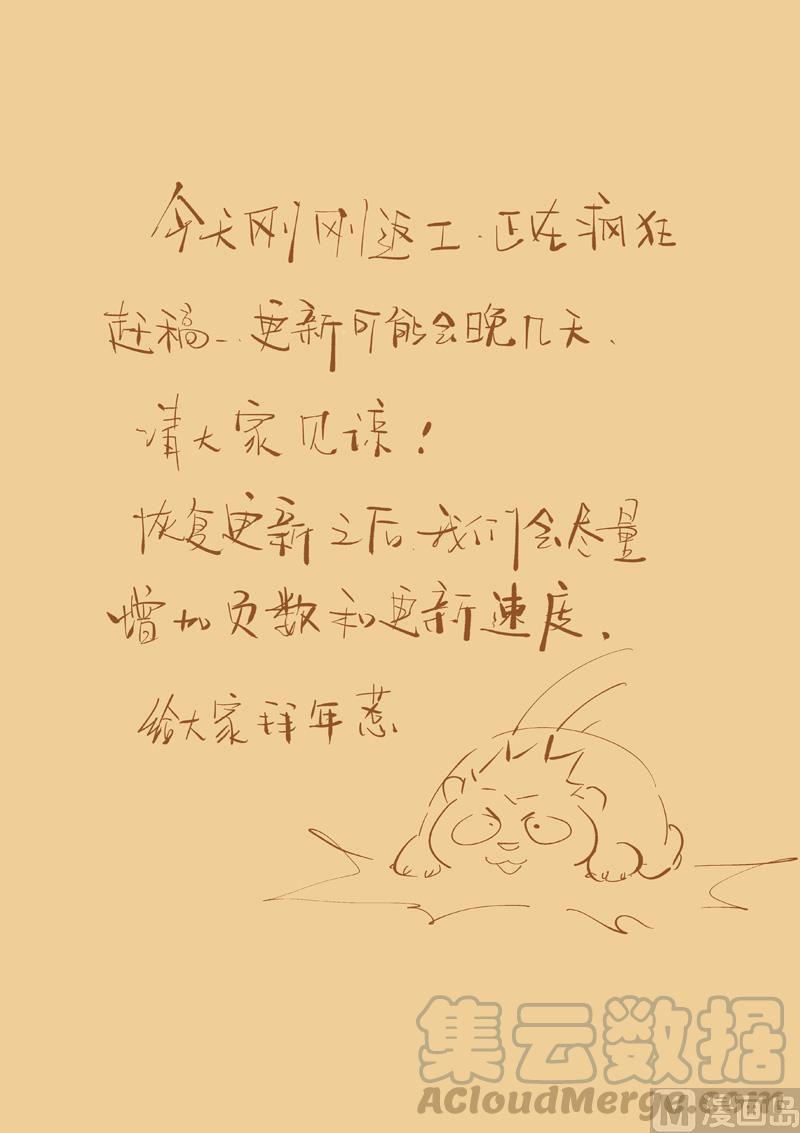 今天刚刚返工.正在疯狂
赶稿... 更新可能会晚几天.
请大家见谅!
恢复更新之后.我们会尽量
增加页数和更新速度.
给大家拜年惹
集云数据
ACloudMerge.com
M漫画岛